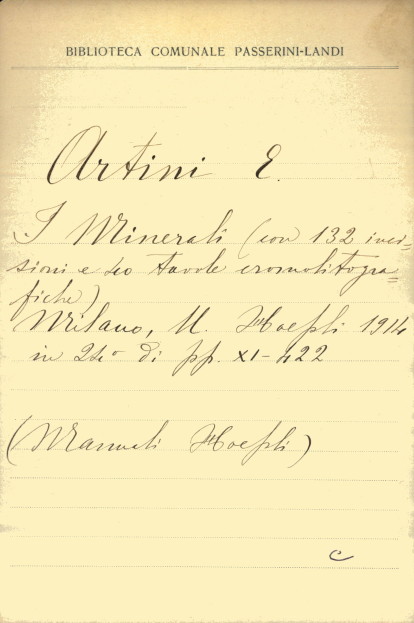 BIBLIOTECA COMUNALE PASSERINI-LANDI
Artini E.
I Minerali (con 132 inci-
sioni e 40 tavole cromolitogra=
fiche)
Milano, U. Hoepli 1914
in 24º di pp. XI-422
(Manuali Hoepli)
c